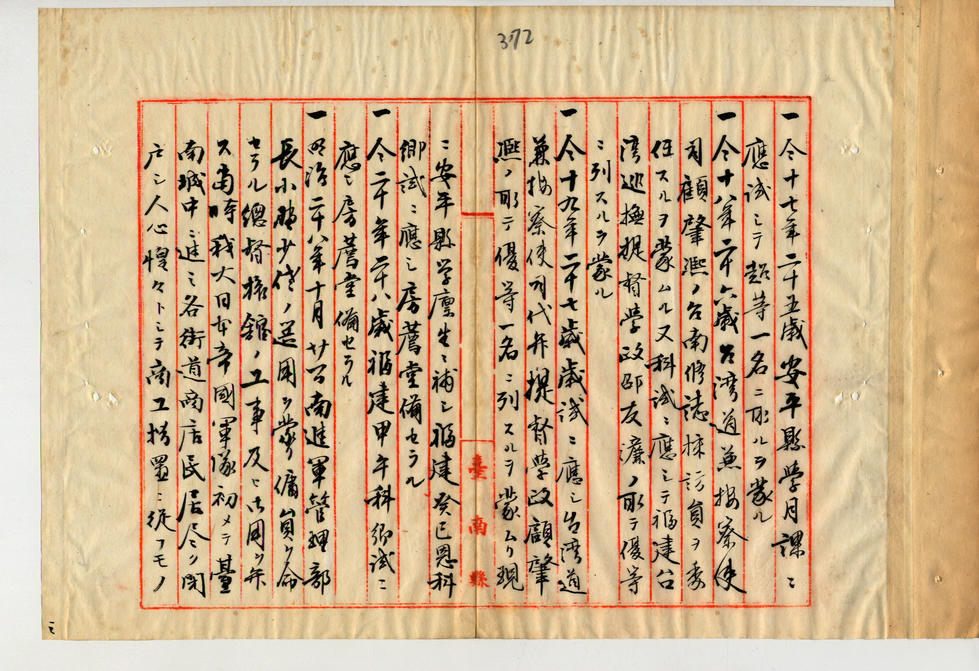 372
一仝十七年二十五歳安平縣学月課ニ
應試シテ超等一名ニ取ルヲ蒙ル
一仝十八年二十六歳台湾道兼按察使
司顧肇熙ノ台南修誌採訪員ヲ委
任スルヲ蒙ムル又科試ニ應シテ福建台
湾巡撫提督学政邵友濂ノ取テ優等
ニ列スルヲ蒙ル
一仝十九年二十七歳歳試ニ應シ台湾道
兼按察使司代弁提督学政顧肇
熙ノ取テ優等一名ニ列スルヲ蒙ムリ現
臺南縣
ニ安平縣学廩生ニ補シ福建癸巳恩科
郷試ニ應シ房薦堂備セラル
一仝二十年二十八歳福建甲午科郷試ニ
應シ房薦堂備セラル
一明治二十八年十月廿 台南進軍管理部
長小 少佐ノ選用ヲ蒙リ傭員ヲ命
セラル總督 館ノ工事及ヒ 用ヲ弁
ス當時我大日本帝國軍隊初メテ臺
南城中ニ進ミ各街道商店民居尽ク閉
戸シ人心惶々トシテ商工措置ニ從フモノ